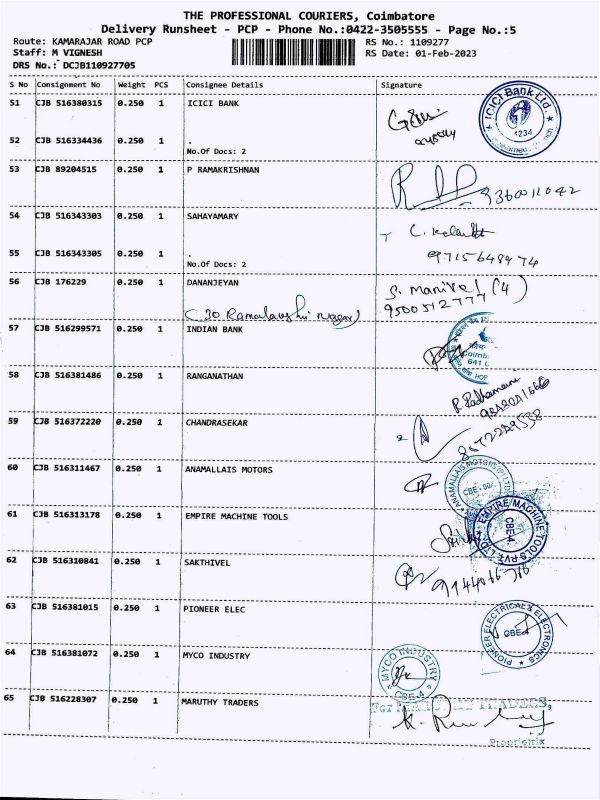 THE PROFESSIONAL COURIERS, Coimbatore
Delivery Runsheet - PCP - Phone No.:0422-3505555 - Page No.:5
Route: KAMARAJAR ROAD PCP
RS No.: 1109277
Staff: M VIGNESH
RS Date: 01-Feb-2023
DRS No.: DCJB110927705
S No Consignment No Weight PCS Consignee Details Signature
51 CJB 516380315 0.250 1 ICICI BANK
ICICI Bank Ltd.
4234
52 CJB 516334436 0.250 1 .
No.Of Docs: 2
53 CJB 89204515 0.250 1 P RAMAKRISHNAN
9360011042
54 CJB 516343303 0.250 1 SAHAYAMARY
55 CJB 516343305 0.250 1 .
No.Of Docs: 2
9715648974
56 CJB 176229 0.250 1 DANANJEYAN
S. Manivel (4)
9500512777
57 CJB 516299571 0.250 1 INDIAN BANK
58 CJB 516381486 0.250 1 RANGANATHAN
59 CJB 516372220 0.250 1 CHANDRASEKAR
60 CJB 516311467 0.250 1 ANAMALLAIS MOTORS
61 CJB 516313178 0.250 1 EMPIRE MACHINE TOOLS
EMPIRE MACHINE TOOLS PVT. LTD.
CBE-4
62 CJB 516310841 0.250 1 SAKTHIVEL
63 CJB 516381015 0.250 1 PIONEER ELEC
PIONEER ELECTRICAL & ELECTRONICS
CBE-4
64 CJB 516381072 0.250 1 MYCO INDUSTRY
MYCO INDUSTRY
CBE-4
65 CJB 516228307 0.250 1 MARUTHY TRADERS
Proprietrix